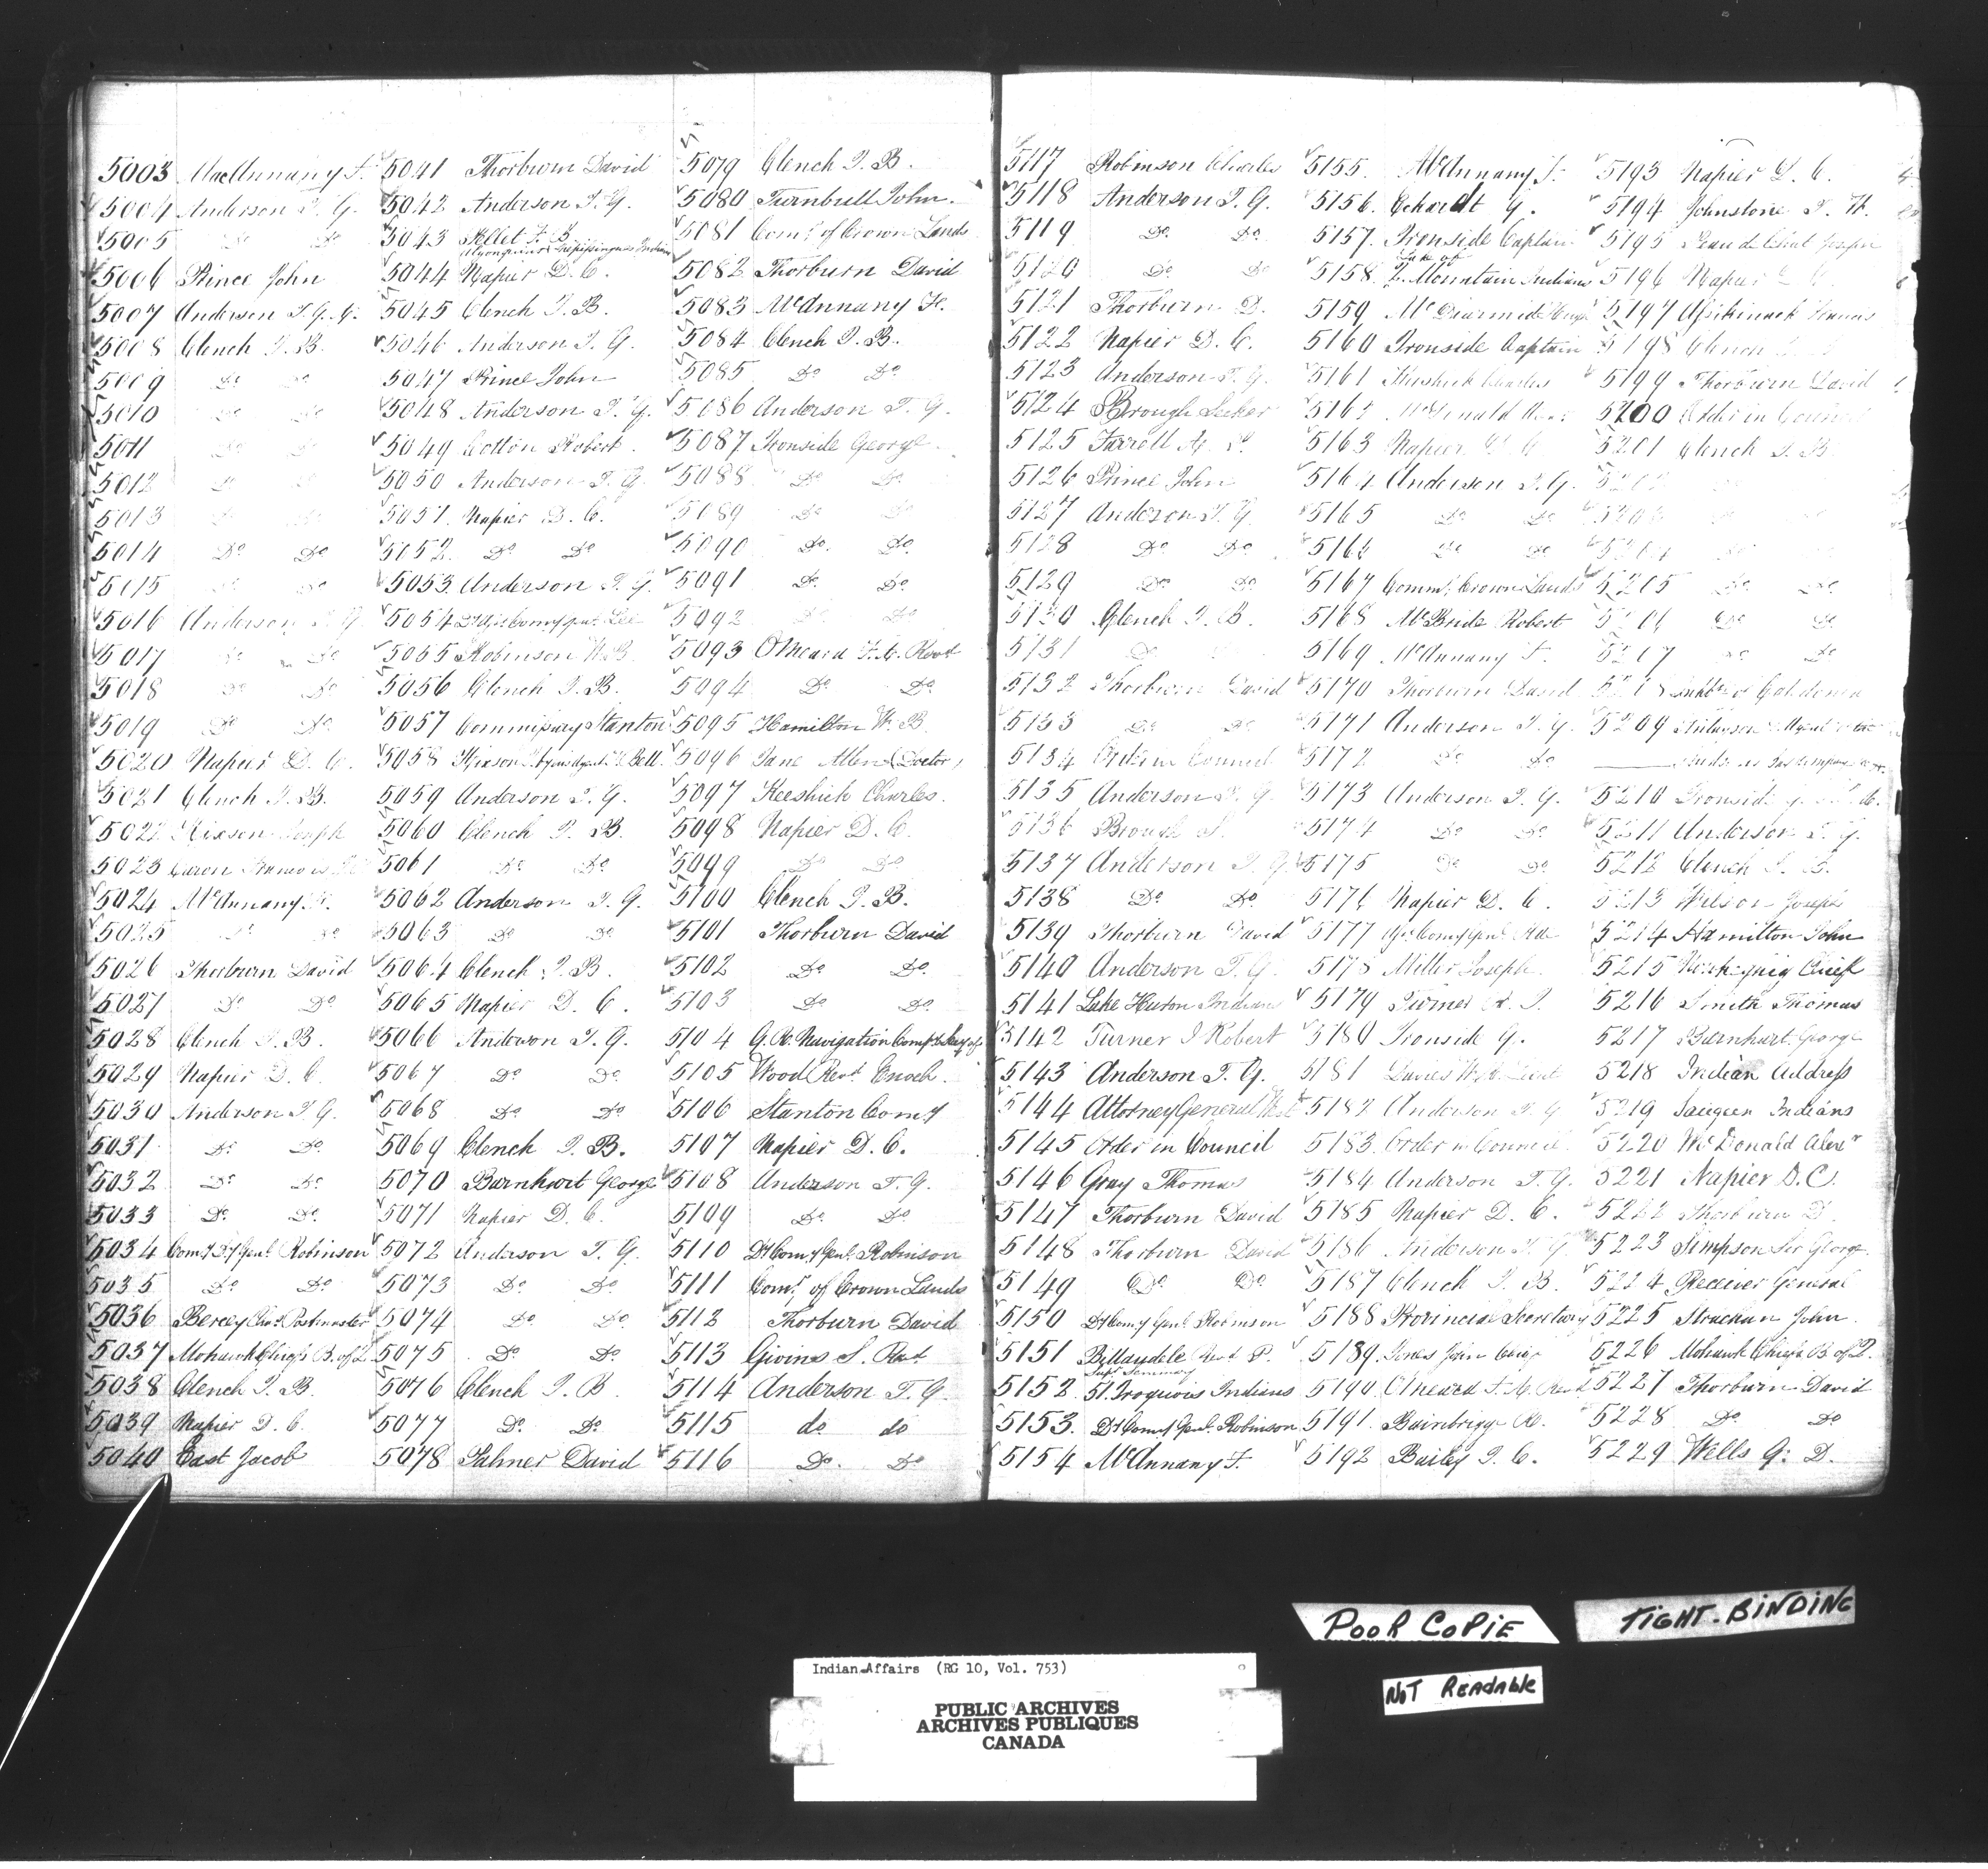 5003 MacAnnany F.
5004 Anderson T. G.
5005 Do Do
5006 Prince John
5007 Anderson T. G.
5008 Clench J. B.
5009 Do Do
5010 Do Do
5011 Do Do
5012 Do Do
5013 Do Do
5014 Do Do
5015 Do Do
5016 Anderson T. G.
5017 Do Do
5018 Do Do
5019 Do Do
5020 Napier D. C.
5021 Clench J. B.
5022 Hixson Joseph
5023 Caron Francois
5024 McAnnany F.
5025 Do Do
5026 Thorburn David
5027 Do Do
5028 Clench J. B.
5029 Napier D. C.
5030 Anderson T. G.
5031 Do Do
5032 Do Do
5033 Do Do
5034 Comy Dy Genl. Robinson
5035 Do Do
5036 Berczy Postmaster
5037 Mohawk Chiefs B. of Q.
5038 Clench J. B.
5039 Napier D. C.
5040 East Jacob
5041 Thorburn David
5042 Anderson T. G.
5043
Algonquin & Nipissingue Indians
5044 Napier D. C.
5045 Clench J. B.
5046 Anderson T. G.
5047 Prince John
5048 Anderson T. G.
5049 Cotton Robert
5050 Anderson T. G.
5051 Napier D. C.
5052 Do Do
5053 Anderson T. G.
5054
5055 Robinson W. B.
5056 Clench J. B.
5057 Commissary Stanton
5058 Hixson
5059 Anderson T. G.
5060 Clench J. B.
5061 Do Do
5062 Anderson T. G.
5063 Do Do
5064 Clench J. B.
5065 Napier D. C.
5066 Anderson T. G.
5067 Do Do
5068 Do Do
5069 Clench J. B.
5070 Barnhart George
5071 Napier D. C.
5072 Anderson T. G.
5073 Do Do
5074 Do Do
5075 Do Do
5076 Clench J. B.
5077 Do Do
5078 Palmer David
5079 Clench J. B.
5080 Turnbull John.
5081 Comr. of Crown Lands
5082 Thorburn David
5083 McAnnany F.
5084 Clench J. B.
5085 Do Do
5086 Anderson T. G.
5087 Ironside George
5088 Do Do
5089 Do Do
5090 Do Do
5091 Do Do
5092 Do Do
5093 OMeara F. A. Revd
5094 Do Do
5095 Hamilton W. B.
5096 Jane Allen (Doctor)
5097 Keeshick Charles.
5098 Napier D. C.
5099 Do Do
5100 Clench J. B.
5101 Thorburn David
5102 Do Do
5103 Do Do
5104 G. R. Navigation Comp. Secy of
5105 Wood Revd. Enoch.
5106 Stanton Comy
5107 Napier D. C.
5108 Anderson T. G.
5109 Do Do
5110 Dy Comy Genl. Robinson
5111 Comr. of Crown Lands
5112 Thorburn David
5113 Givins S. Revd.
5114 Anderson T. G.
5115 do do
5116 Do Do
5117 Robinson Charles
5118 Anderson T. G.
5119 Do Do
5120 Do Do
5121 Thorburn D.
5122 Napier D. C.
5123 Anderson T. G.
5124 Brough Secker
5125 Farrell
5126 Prince John
5127 Anderson T. G.
5128 Do Do
5129 Do Do
5130 Clench J. B.
5131 Do
5132 Thorburn David
5133 Do Do
5134 Order in Council
5135 Anderson T. G.
5136 Brough S.
5137 Anderson T. G.
5138 Do Do
5139 Thorburn David
5140 Anderson T. G.
5141 Lake Huron Indians
5142 Turner J Robert
5143 Anderson T. G.
5144 Attorney General West
5145 Order in Council
5146 Gray Thomas
5147 Thorburn David
5148 Thorburn David
5149 Do Do
5150 Dy Comy Genl Robinson
5151 Billaudele Revd. P.
Supr. Seminary
5152 St. Iroquois Indians
5153. Dy Comy Genl. Robinson
5154 McAnnany F.
5155. McAnnany F.
5156. Eckardt G.
5157. Ironside Captain
Lake of
5158. 2. Mountain Indians
5159 McDiarmid Hugh
5160 Ironside Captain
5161 Keeshick Charles
5162 McDonald
5163 Napier D. C.
5164 Anderson T. G.
5165 Do Do
5166 Do Do
5167 Commr. Crown Lands
5168 McBride Robert
5169 McAnnany F.
5170 Thorburn David
5171 Anderson T. G.
5172 Do Do
5173 Anderson T. G.
5174 Do Do
5175 Do Do
5176 Napier D. C.
5177 Comy Genl
5178 Miller Joseph
5179 Turner R. J.
5180 Ironside G.
5181 Davies
5182 Anderson T. G.
5183. Order in Council
5184 Anderson T. G.
5185 Napier D. C.
5186 Anderson T. G.
5187 Clench J. B.
5188 Provincial Secretary
5189 Jones John Chief
5190 OMeara F. A. Revd
5191 Bainbrigge
5192 Bailey J. C.
5193 Napier D. C.
5194 Johnstone
5195
5196 Napier D. C.
5197 Assikinack Francis
5198 Clench
5199 Thorburn David
5200 Order in Council
5201 Clench J. B.
5202
5203
5204
5205 Do Do
5206 Do Do
5207 Do Do
5208 Inhbts of Caledonia
5209
5210 Ironside G.
5211 Anderson T. G.
5212 Clench J. B.
5213 Wilson Joseph
5214 Hamilton John
5215 Chief
5216 Smith Thomas
5217 Barnhart George
5218 Indian Address
5219 Saugeen Indians
5220 McDonald Alexr
5221 Napier D. C.
5222 Thorburn D.
5223 Simpson Sir George
5224 Receiver General
5225 Strachan John
5226 Mohawk Chiefs B. of Q.
5227 Thorburn David
5228 Do Do
5229 Wells G. D.
POOR COPiE
TIGHT-BiNDiNG
NOT READABLE
Indian Affairs (RG 10, Vol. 753)
PUBLIC ARCHIVES
ARCHIVES PUBLIQUES
CANADA